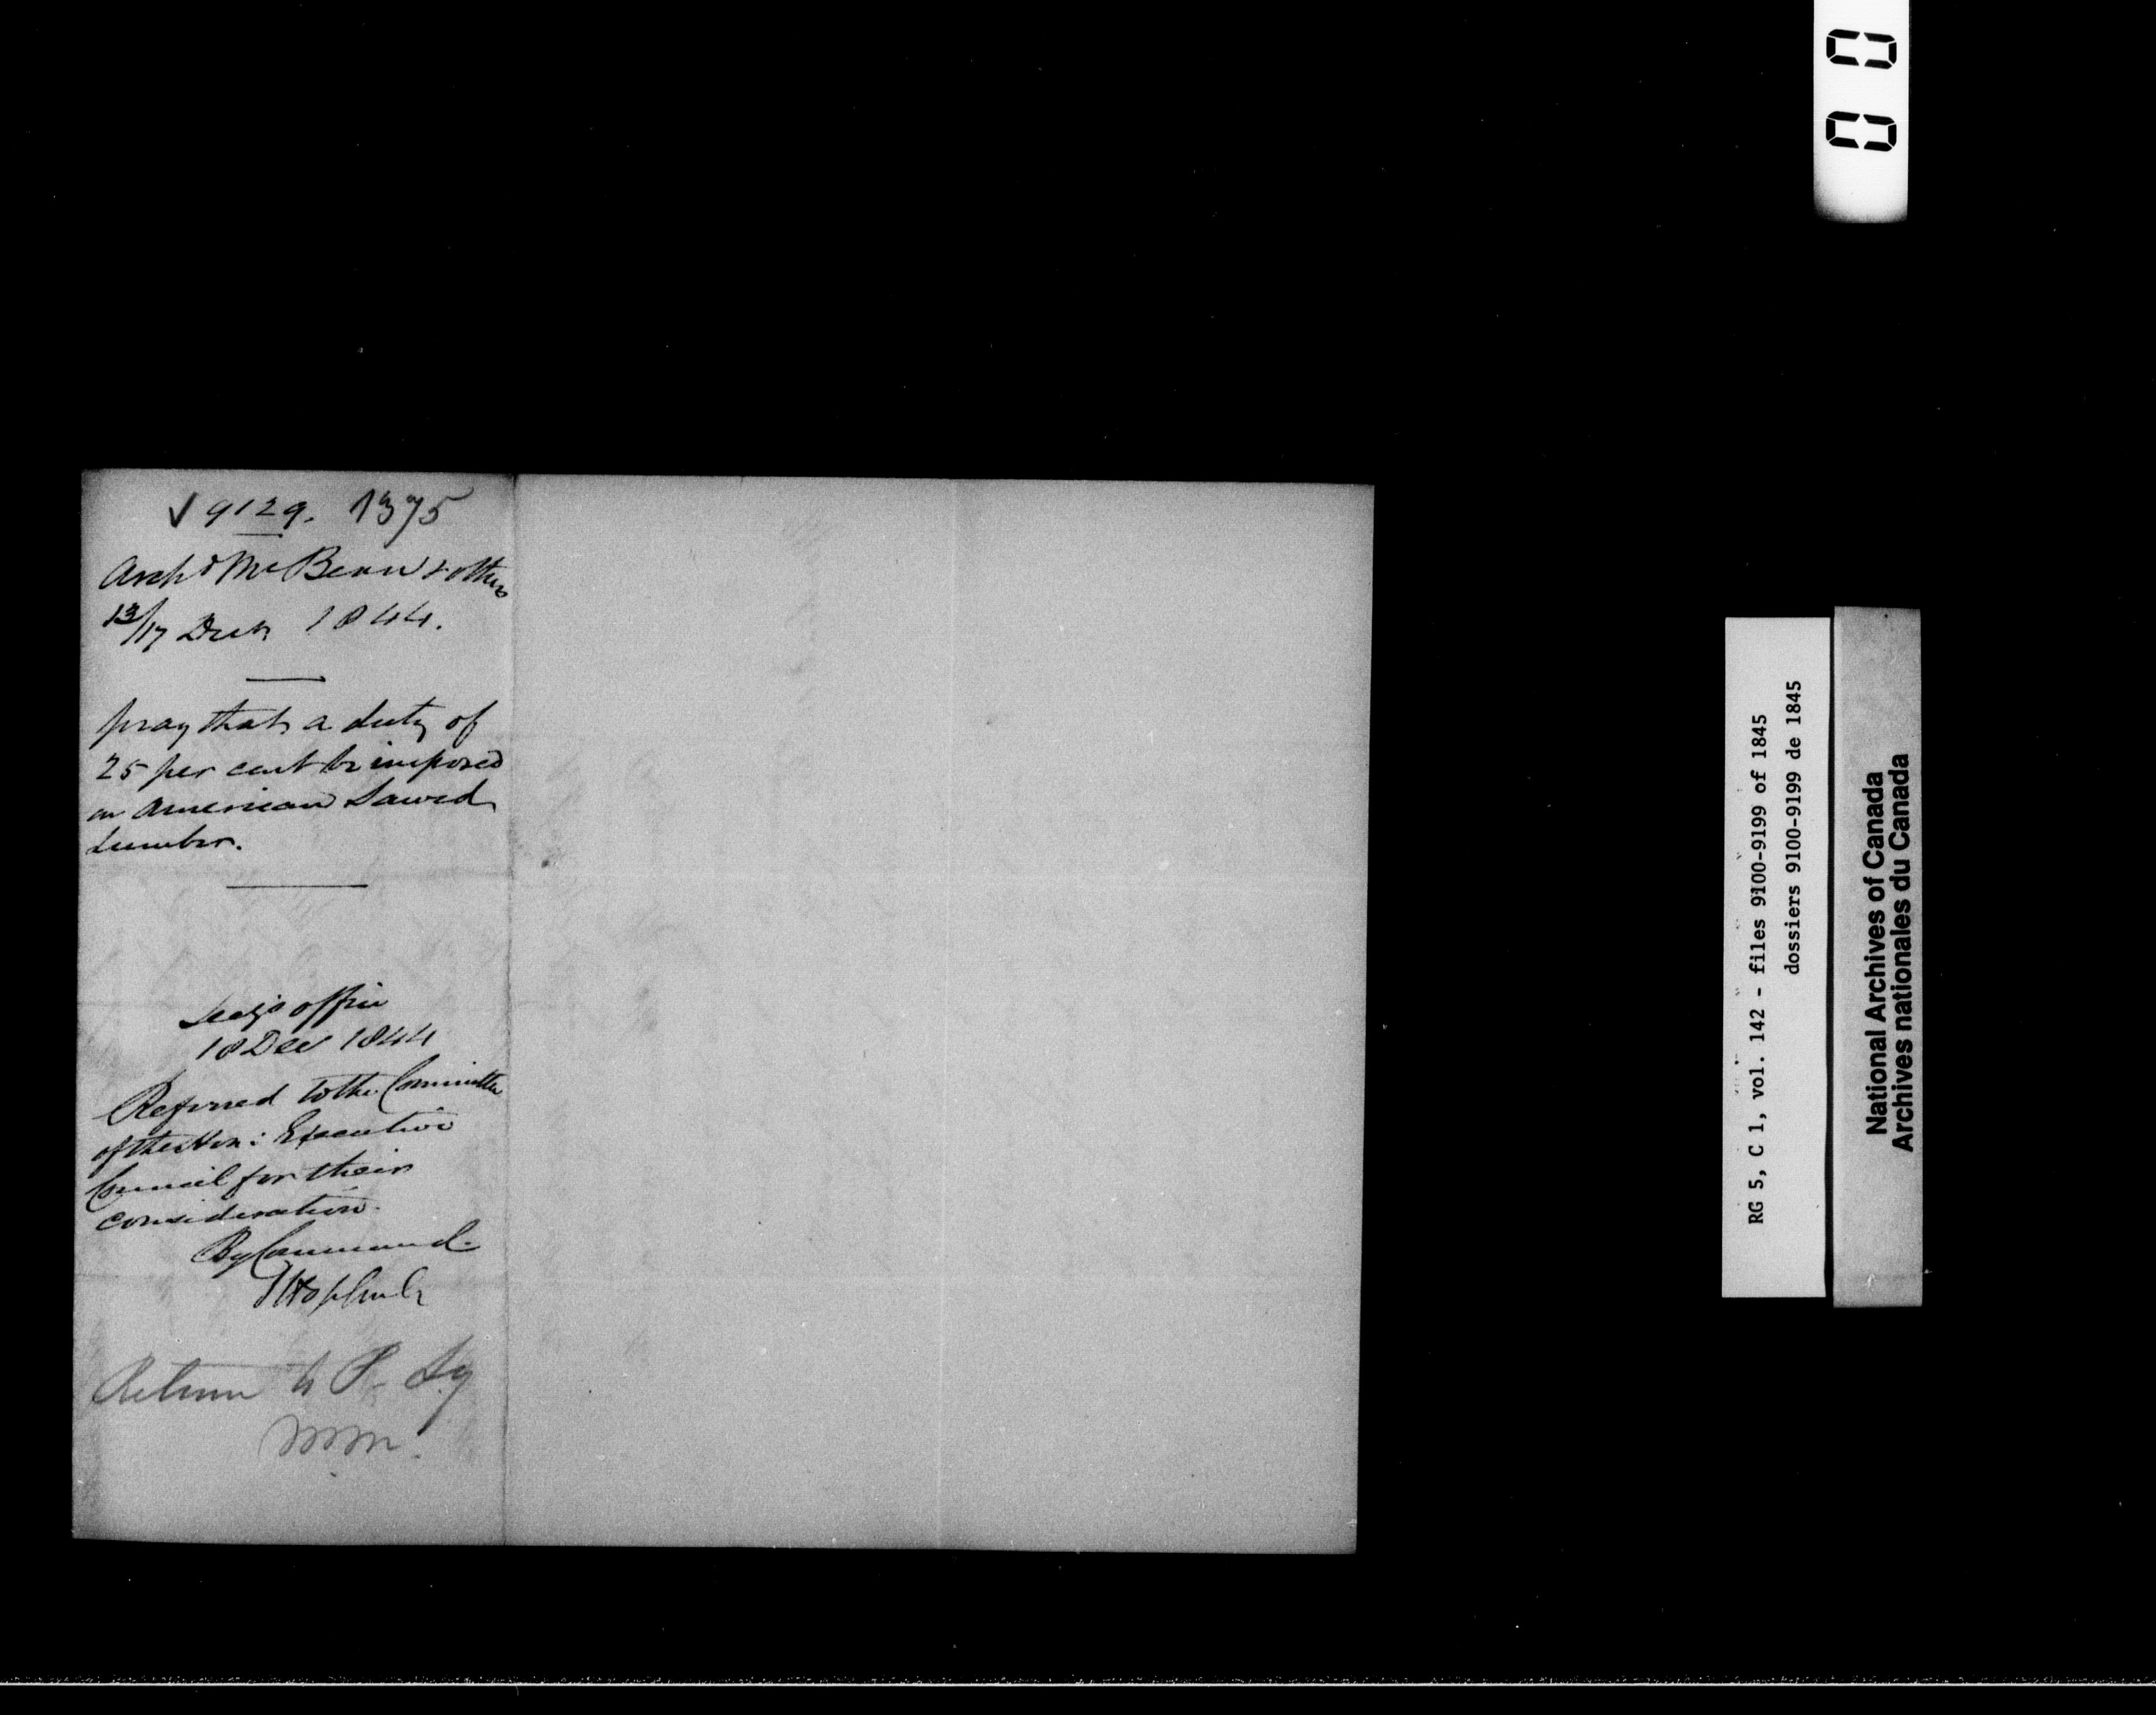 ✓ 9129. 1375
Archd McBean & others
13/17 Decr 1844.
pray that a duty of
25 per cent be imposed
on American Sawed
Lumber.
Secy's office
18 Dec 1844
Referred to the Committee
of the Hon: Executive
Council for their
consideration.
By Command.
JHopkirk
Return to P. Sy
00
RG 5, C 1, vol. 142 - files 9100-9199 of 1845
dossiers 9100-9199 de 1845
National Archives of Canada
Archives nationales du Canada